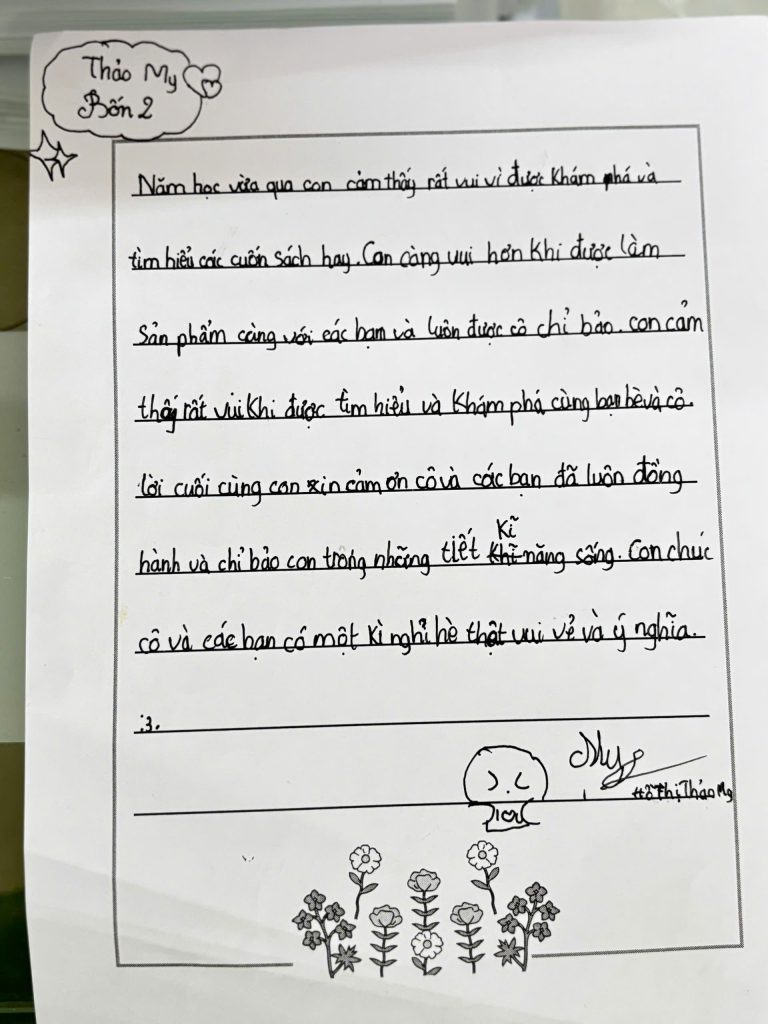 Thảo My
Bốn 2
Năm học vừa qua con cảm thấy rất vui vì được Khám phá và
tìm hiểu các cuốn sách hay. Con càng vui hơn Khi được làm
Sản phẩm càng với các bạn và luôn được cô chỉ bảo. con cảm
thấy rất vui Khi được tìm hiểu và Khám phá cùng bạn bè và cô.
lời cuối cùng con xin cảm ơn cô và các bạn đã luôn đồng
hành và chỉ bảo con trong những tiết Kĩ năng sống. Con chúc
cô và các bạn có một Kì nghỉ hè thật vui vẻ và ý nghĩa.
:3.
My
Hồ Thị Thảo My